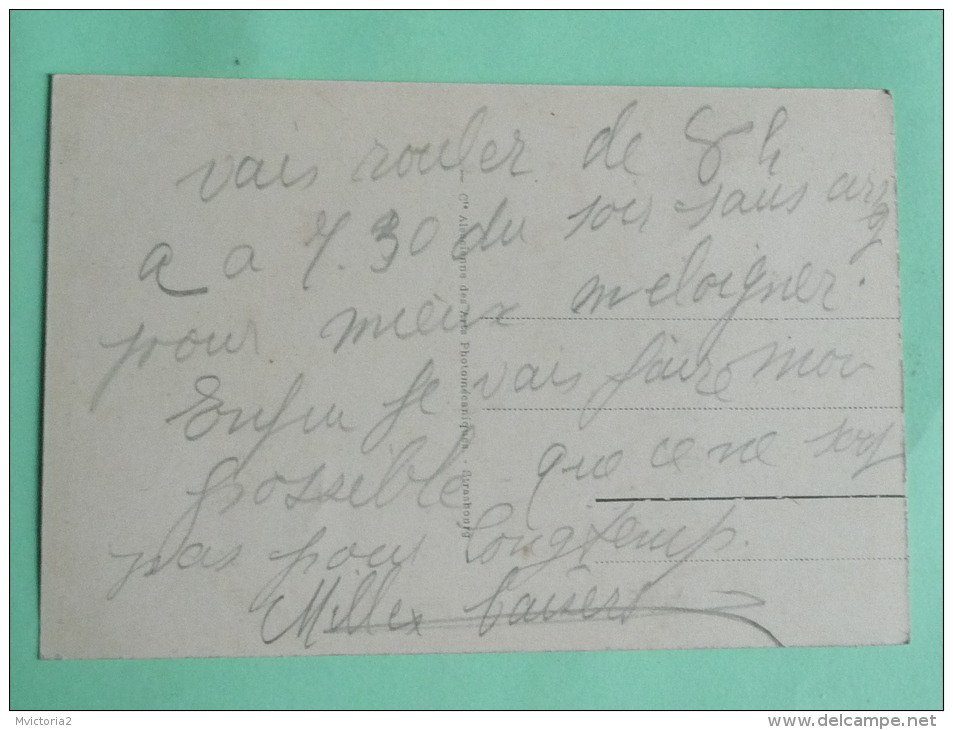 vais rouler de 8h
a a 7.30 du soir sans
pour mieux meloigner.
Enfin je vais faire mon
possible que ce ne soit
pas pour longtemp.
Mille baisers
Cie Alsacienne des Arts Photomécaniques - Strasbourg
Mvictoria2
delcampe.net